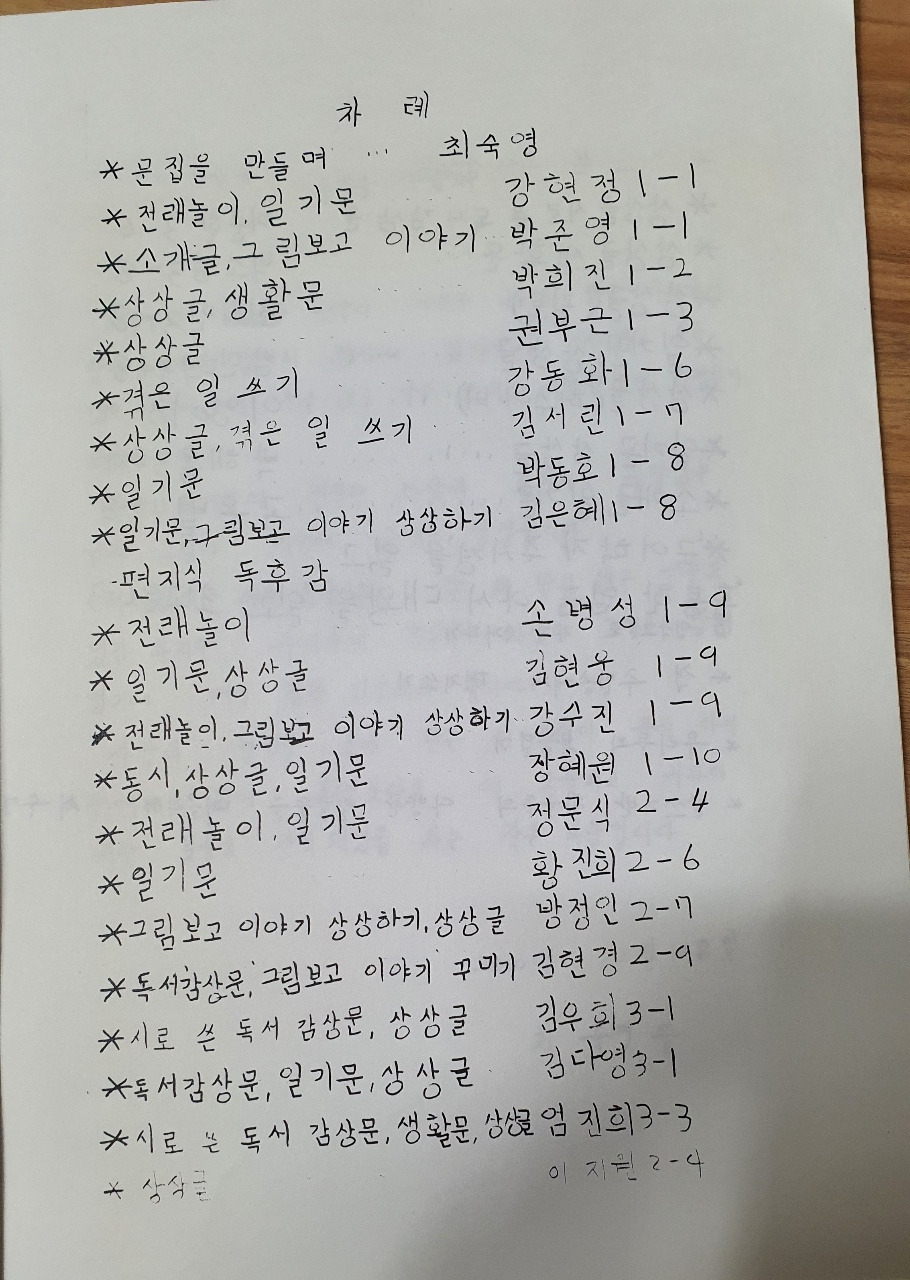 차 례
* 문집을 만들며 ... 최숙영
* 전래놀이, 일기문 강현정 1-1
* 소개글, 그림보고 이야기 박준영 1-1
* 상상글, 생활문 박희진 1-2
* 상상글 권부근 1-3
* 겪은 일 쓰기 강동화 1-6
* 상상글, 겪은 일 쓰기 김서린 1-7
* 일기문 박동호 1-8
* 일기문, 그림보고 이야기 상상하기 김은혜 1-8
-편지식 독후감
* 전래놀이 손병성 1-9
* 일기문, 상상글 김현웅 1-9
* 전래놀이, 그림보고 이야기 상상하기 강수진 1-9
* 동시, 상상글, 일기문 장혜원 1-10
* 전래놀이, 일기문 정문식 2-4
* 일기문 황진희 2-6
* 그림보고 이야기 상상하기, 상상글 방정인 2-7
* 독서감상문, 그림보고 이야기 꾸미기 김현경 2-9
* 시로 쓴 독서 감상문, 상상글 김우희 3-1
* 독서감상문, 일기문, 상상글 김다영 3-1
* 시로 쓴 독서 감상문, 생활문, 상상글 엄진희 3-3
* 상상글 이지원 2-4